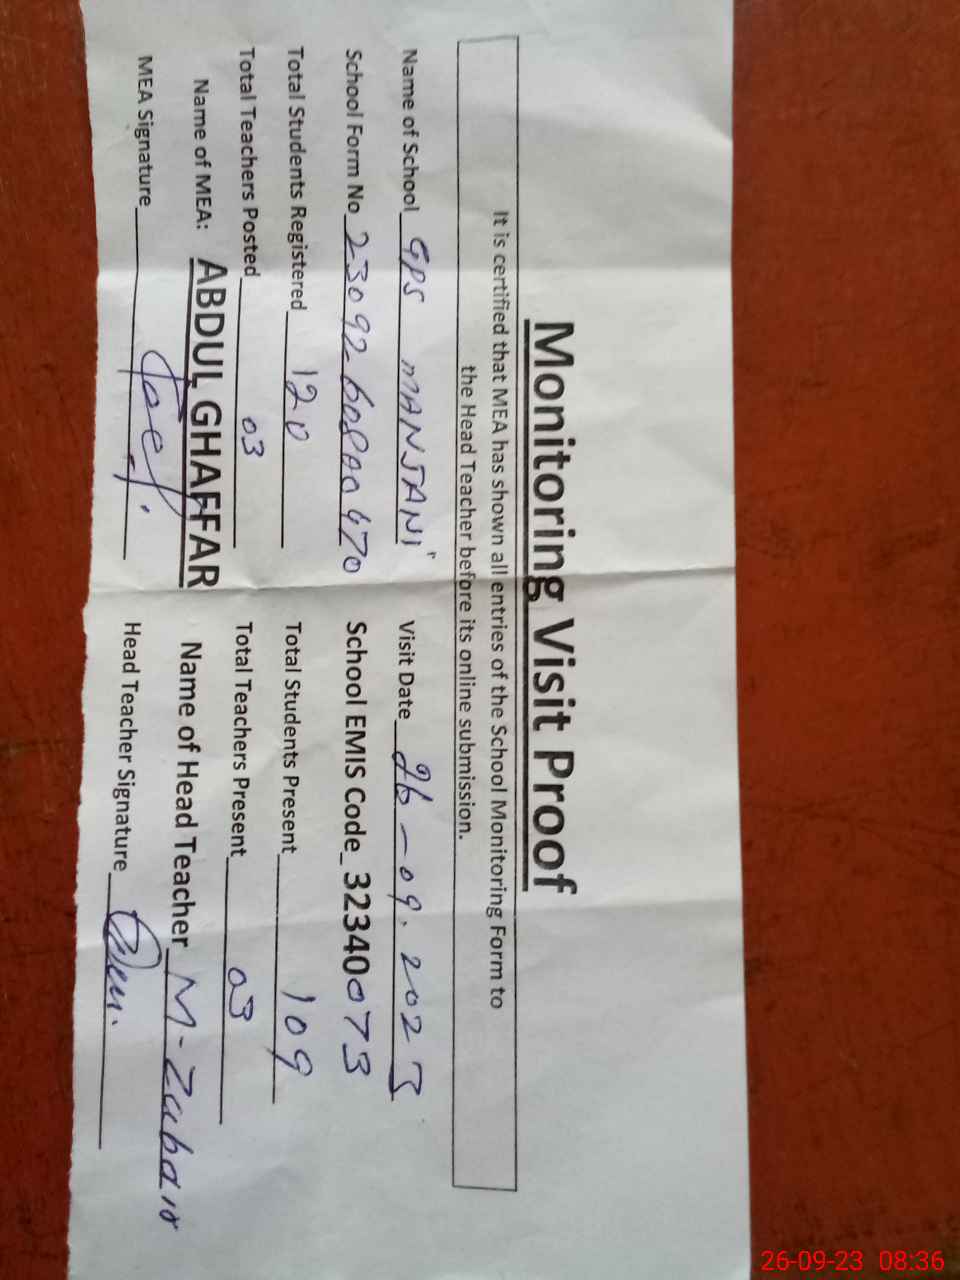 Monitoring Visit Proof
It is certified that MEA has shown all entries of the School Monitoring Form to
the Head Teacher before its online submission.
Name of School GPS MANJANI Visit Date 26-09.2023
School Form No 2309260800470 School EMIS Code 32340073
Total Students Registered 120 Total Students Present 109
Total Teachers Posted 03 Total Teachers Present 03
Name of MEA: ABDUL GHAFFAR Name of Head Teacher M-Zubair
MEA Signature Head Teacher Signature
26-09-23 08:36